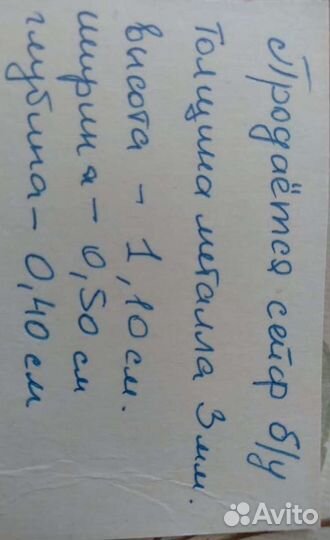 Продаётся сейф б/у
Толщина металла 3мм.
высота - 1,10см.
ширина - 0,50см
глубина - 0,40см
Avito